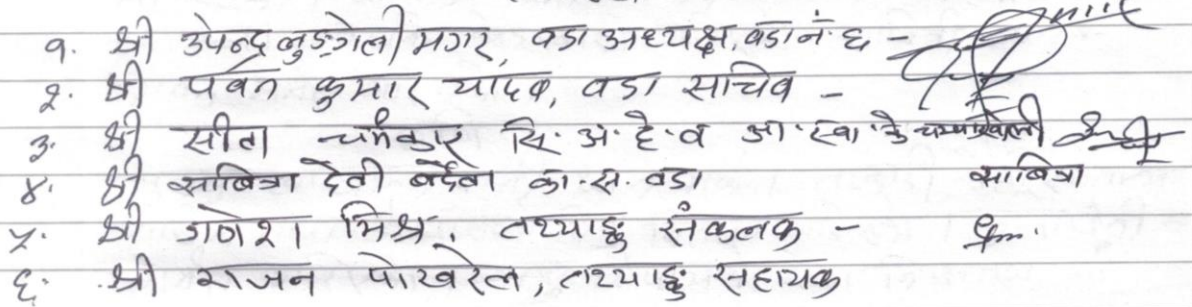 १. श्री उपेन्द्र लुङ्गेली मगर, वडा अध्यक्ष, वडा नं. ६ -
२. श्री पवन कुमार यादव, वडा सचिव -
३. श्री सीता सि. अ. हे. व आ. स्वा. के
४. श्री साबित्रा देवी का. स. वडा साबित्रा
५. श्री गणेश मिश्र, तथ्याङ्क संकलक -
६. श्री राजन पोखरेल, तथ्याङ्क सहायक